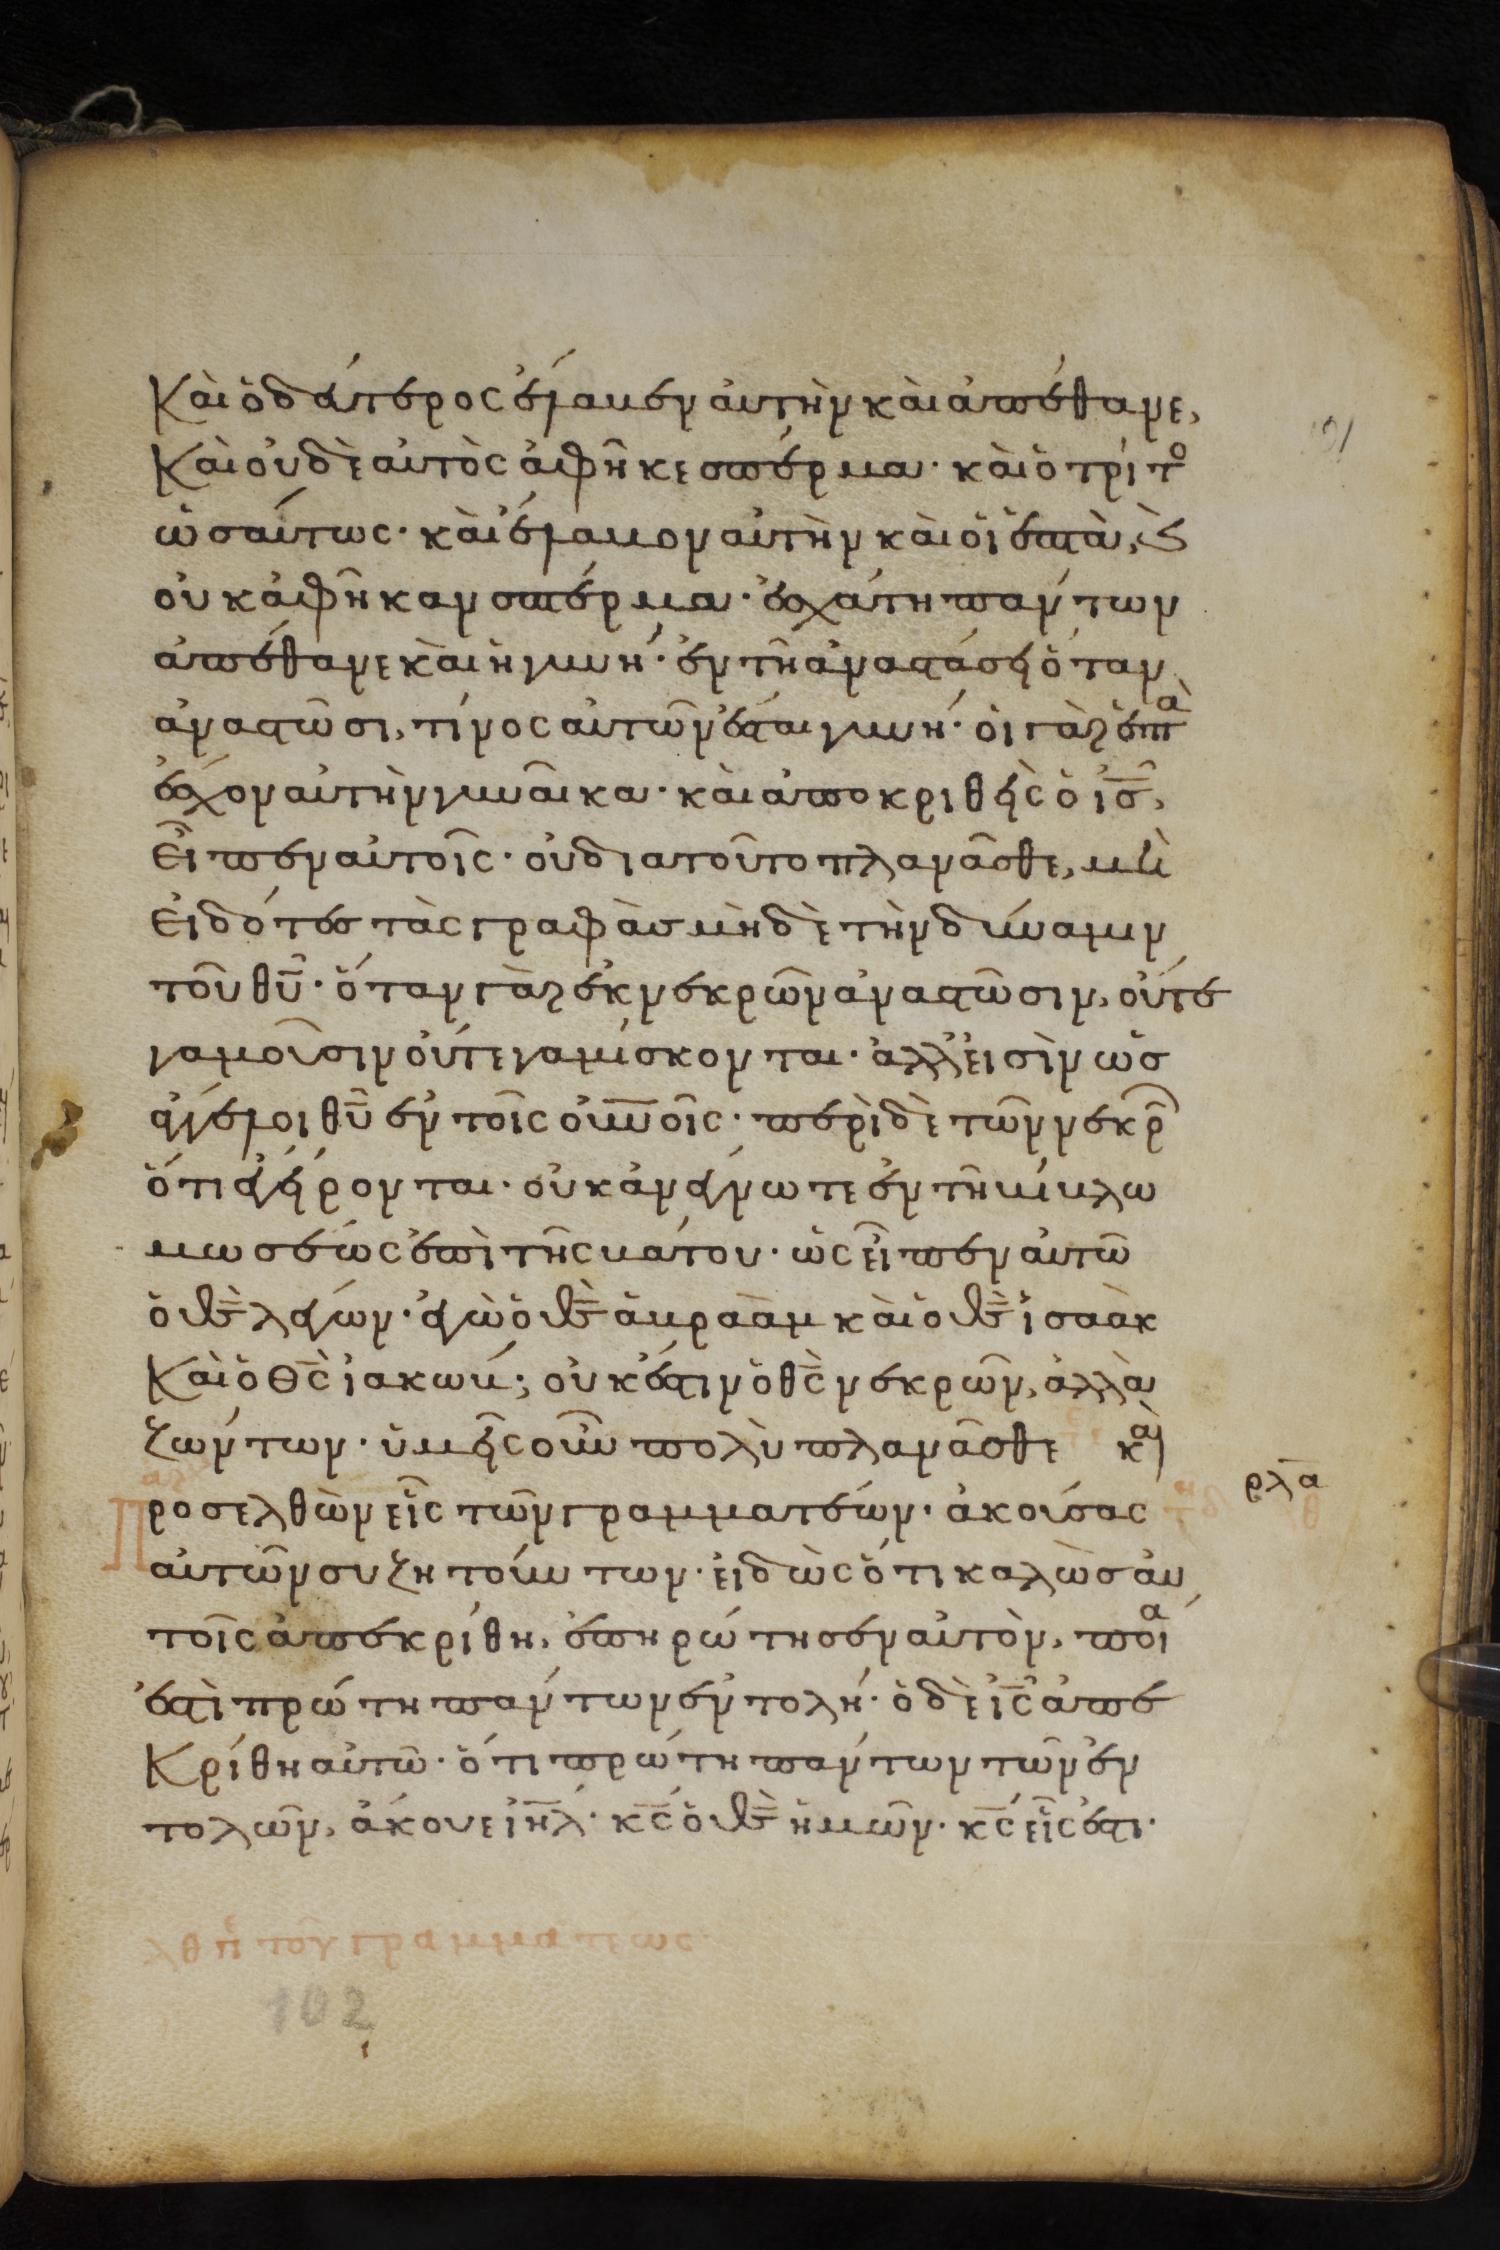 Καὶ ὁ δεύτερος ἔγαμεν αὐτὴν καὶ ἀπέθανε,
Καὶ οὐδὲ αὐτὸς ἀφῆκε σπέρμα· καὶ ὁ τρίτο
ὡσαύτως· καὶ ἔγαμον αὐτὴν καὶ οἱ ἑπτὰ, ϗ
οὐκ ἀφῆκαν σπέρμα· ἐσχάτη πάντων
ἀπέθανε καὶ ἡ γυνή· ἐν τῆ ἀναστάσει ὅταν
ἀναστῶσι, τίνος αὐτῶν ἔσται γυνή· οἱ γὰρ ἑπτὰ
ἔσχον αὐτὴν γυναῖκα· καὶ ἀποκριθεὶς ὁ ἰς̅,
Εἶπεν αὐτοῖς· οὐ διατοῦτο πλανᾶσθε, μὴ
Εἰδότες τὰς γραφὰς μὴδὲ τὴν δύναμιν
τοῦ θυ̅· ὅταν γὰρ ἐκ νεκρῶν ἀναστῶσιν, οὔτε
γαμοῦσιν οὔτε γαμίσκονται· ἀλλ' εἰσὶν ὡς
ἄγγελοι θυ̅ ἐν τοῖς οὐνοῖς· περὶ δὲ τῶν νεκρ
ὅτι ἐγείρονται· οὐκ ἀνέγνωτε ἐν τῆ βίβλω
μωσέως ἐπὶ τῆς βάτου· ὡς εἶπεν αὐτῶ
ὁ θς̅ λέγων· ἐγὼ ὁ θς̅ ἀβραὰμ καὶ ὁ θς̅ ἰσαὰκ
Καὶ ὁ θς̅ ἰακώβ; οὐκ ἔστιν ὁ θς̅ νεκρῶν, ἀλλὰ
ζώντων· ὑμεῖς οὖν πολὺ πλανᾶσθε καὶ
Προσελθὼν εἷς τῶν γραμματέων· ἀκούσας
ρλα
αὐτῶν συζητούντων· εἰδὼς ὅτι καλῶς αὐ
τοῖς ἀπεκρίθη, ἐπηρώτησεν αὐτὸν, ποία
ἐστὶ πρώτη πάντων ἐντολή· ὁ δὲ ἰς̅ ἀπε
Κρίθη αὐτῶ· ὅτι πρώτη πάντων τῶν ἐν
τολῶν, ἄκουε ἰηλ̅· κς̅ ὁ θς̅ ἡμῶν· κς̅ εἷς ἐστι·
λθ πε τοῦ γραμματέως
102